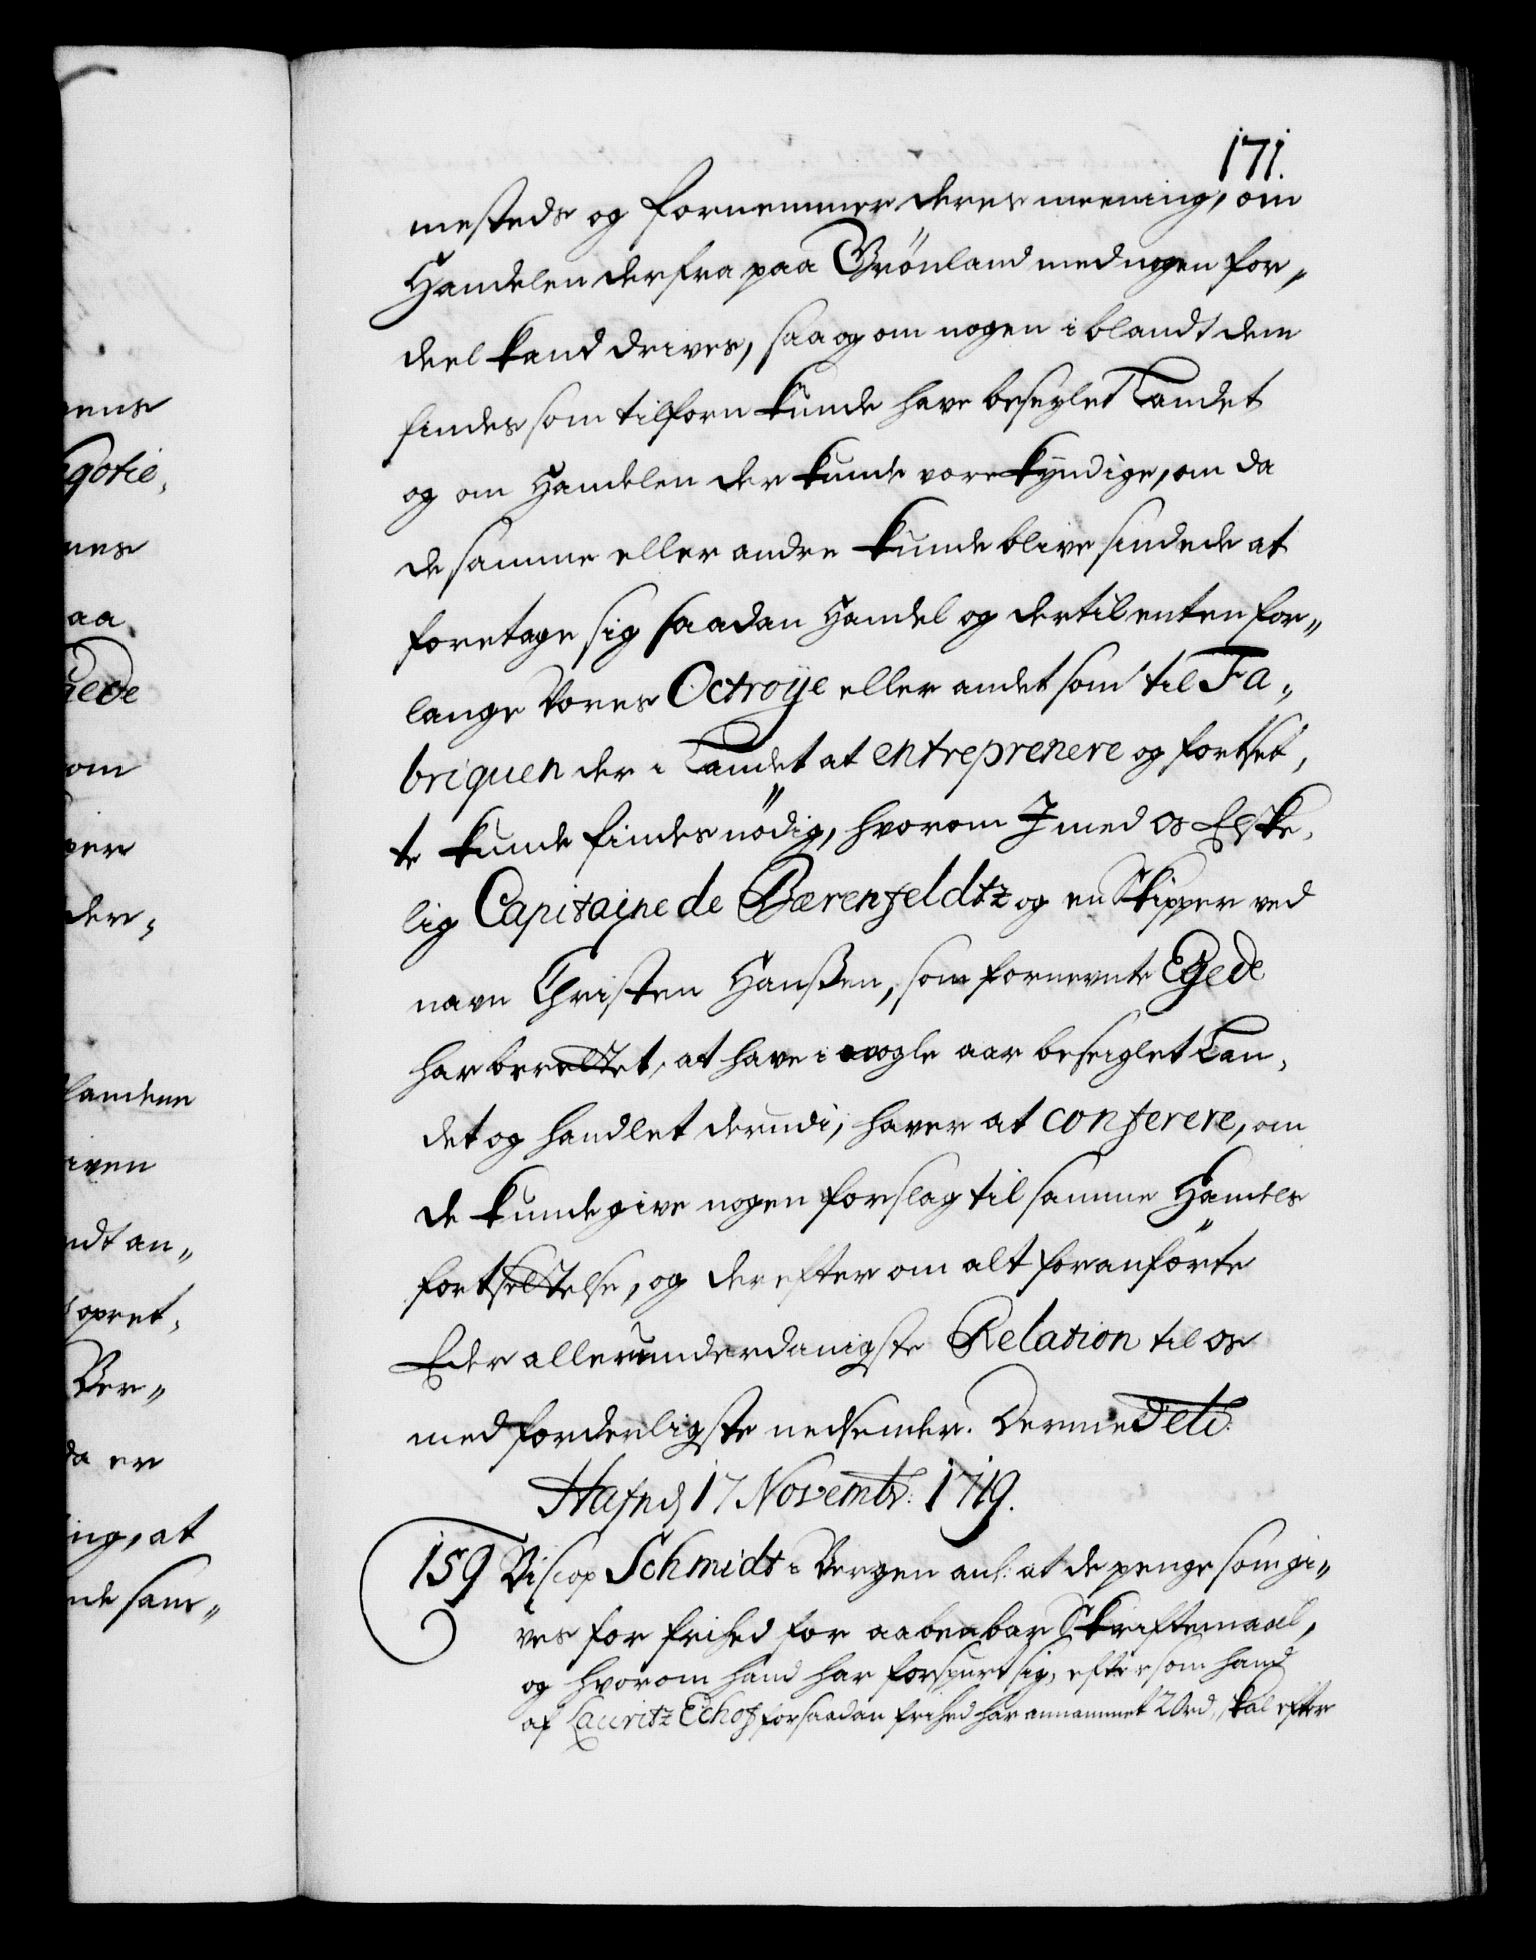 171.
mesteds og fornemmer deres meening, om
Handelen derfra paa Grönland med nogen for„
deel kand drives, saa og om nogen iblandt dem
findes som tilforn kunde have beseylet Landet
og om Handelen der kunde vere kyndige, om da
de samme eller andre kunde blive sindede at
foretage sig saadan Handel og dertil enten for„
lange Vores Octroye eller andet som til Fa„
briquen der i Landet at entreprenere og fortset,
te kunde findes nödig, hvorom I med os Elske,
lig Capitaine de Bærenfeldtz og en Skipper ved
navn Christen Hanßen, som fornevnte Egede
har berettet, at have i nogle aar beseiglet Lan,
det og handlet derudi, haver at conferere, om
de kunde give nogen forslag til samme Handels
fortsettelse, og derefter om alt foranförte
Eder allerunderdanigste Relation til os
med forderligste nedsender. Dermed etc:
Hafn d 17 Novembr: 1719.
159 Biscop Schmidt i Bergen anl: at de penge som gi„
ves for frihed for aabenbar Skriftemaal,
og hvorom hand har forspurt sig, eftersom hand
af Lauritz Echof for saadan frihed har annammet 20rd, skal efter
ens
gotie,
nes
aa
gede
om
ver
der„
landene
iven
ndt an„
opret,
Ber„
da er
ing, at
nde sam„